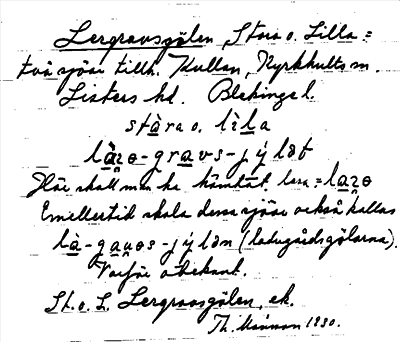 Lergravsgölen, Stora o. Lilla =
två sjöar tillh. Kullan, Kyrkhults sn.
Listers hd. Blekinge l.
stàra o. lìla
làrə-gravs-jýlət
Här skall man ha hämtat lera = larə
Emellertid skola dessa sjöar också kallas
là-gaʋəs-jýlən (ladugårdsgölarna).
Varför obekant.
St. o. L. Lergravsgölen, ek.
Th. 1930.